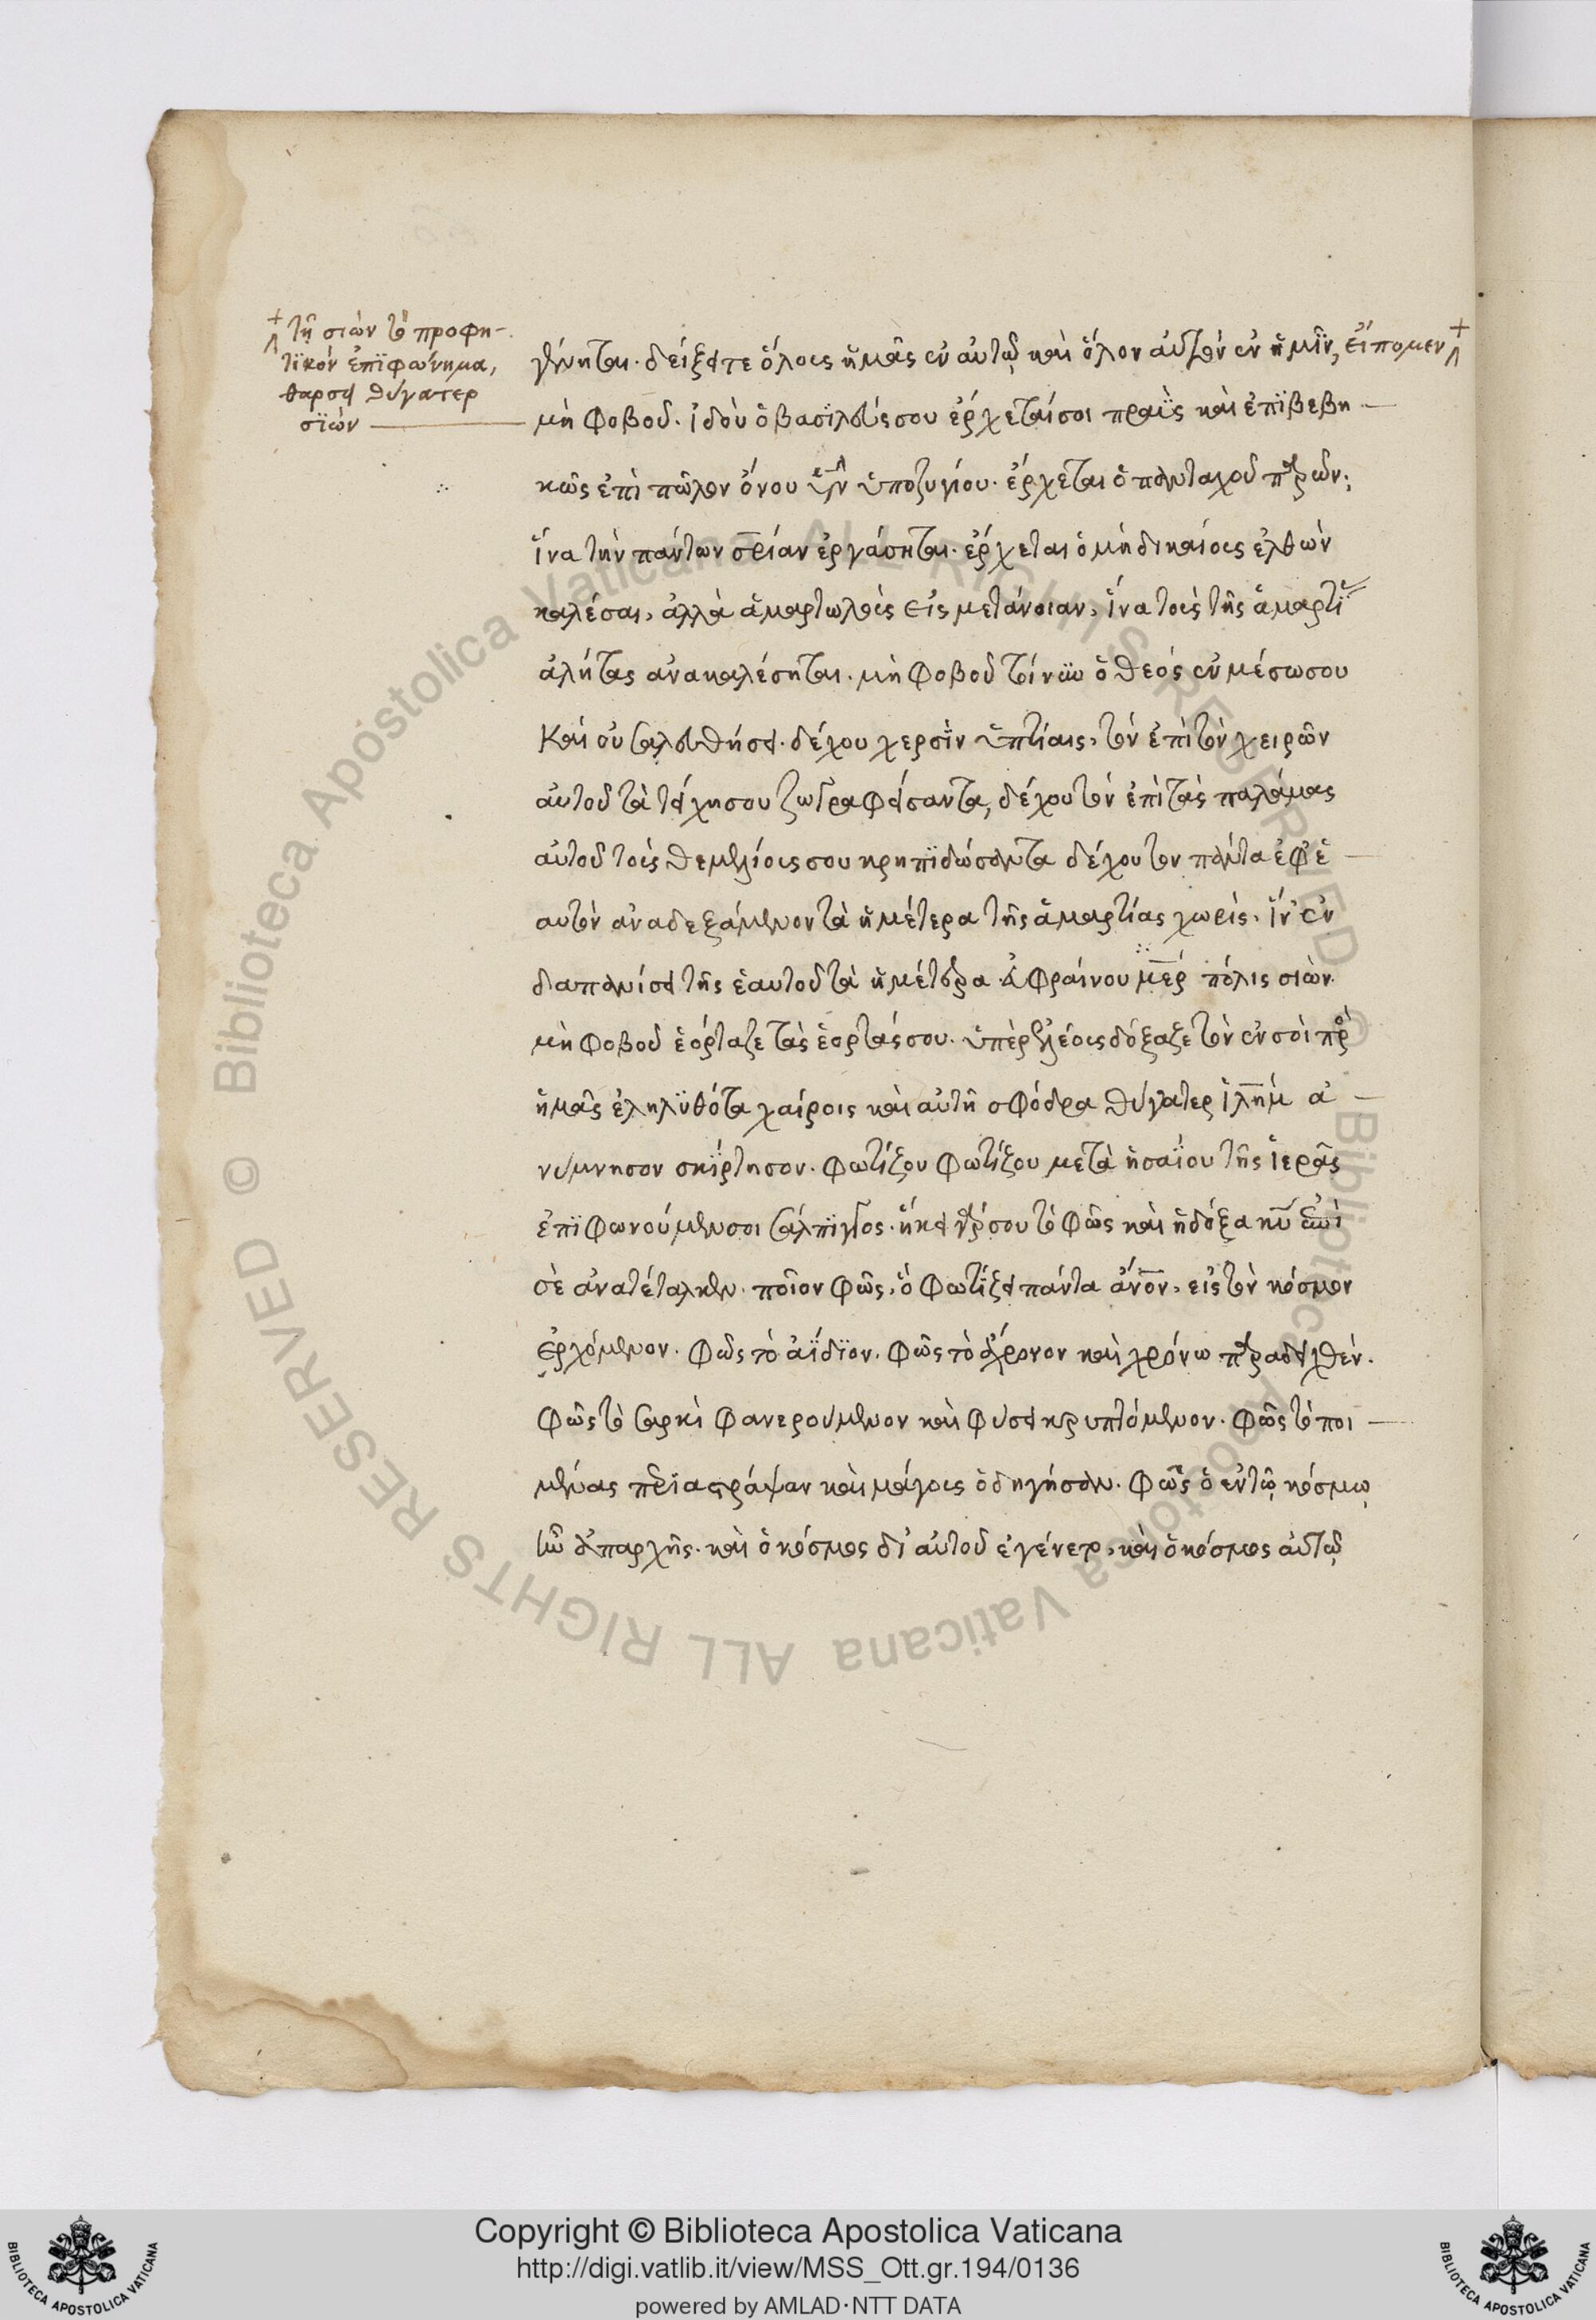 τῇ σιὼν τὸ προφη-
τϊκὸν ἐπϊφώνημα,
θαρσει θύγατερ
σϊών
γένηται. δείξει τε ὅλους ἡμᾶς ἐν αὐτῷ καὶ ὅλον αὐτὸν ἐν ἡμῖν, εἴπομεν
μὴ φοβοῦ. ἰδοὺ ὁ βασϊλεύς σου ἔρχεταί σοι πραῢς καὶ ἐπϊβεβη
κὼς ἐπὶ πῶλον ὄνου ὑποζυγίου. ἔρχεται ὁ πανταχοῦ παρών,
ἵνα τὴν πάντων σρίαν ἐργάσηται. ἔρχεται ὁ μὴ δικαίους ἐλθὼν
καλέσαι, ἀλλὰ ἁμαρτωλοὺς εἰς μετάνοιαν, ἵνα τοὺς τῆς ἁμαρτί
ἀλήτας ἀνακαλέσηται. μὴ φοβοῦ ὁ θεός ἐν μέσω σου
Καὶ οὐ σαλευθήσει. δέχου χερσῒν ὑπτίαις, τὸν ἐπὶ τὸν χειρῶν
αὐτοῦ τὰ τείχη σου ζωγραφείσαντα, δέχου τὸν ἐπὶ τὰς παλάμας
αὐτοῦ τοὺς θεμελίους σου κρηπϊδώσαντα δέχου τὸν πάντα ἐφ ἑ
αυτὸν ἀναδεξάμενον τὰ ἡμέτερα τῆς ἁμαρτίας χωρίς. ἵν ἐν
δαπανίσει τῆς ἑαυτοῦ τὰ ἡμέτερα. εὐφραίνου μερ πόλις σιὼν.
μὴ φοβοῦ ἑόρταζε τὰς ἑορτάς σου. ὑπὲρ ἐλέους δόξαζε τὸν ἐν σοὶ πρὸ
ἡμᾶς ἐληλϋθότα χαίροις καὶ αὐτὴ σφόδρα θύγατερ ἱλημ ἀ
νύμνησον σκΐρτησον. φωτίζου φωτίζου μετὰ ἡσαΐου τῆς ἱερᾶς
ἐπϊφωνούμεν σοι σάλπιγγος. ἥκει γάρ σου τὸ φῶς καὶ ἡ δόξα κυ ἐπὶ
σὲ ἀνατέταλκεν. ποῖον φῶς, ὁ φωτίζει πάντα ἀνον, εἰς τὸν κόσμον
ἐρχόμενον. φῶς τὸ ἀΐδϊον. φῶς τὸ ἄχρονον καὶ χρόνω παραδειχθέν.
φῶς τὸ σαρκὶ φανερούμενον καὶ φύσει κρυπτόμενον. φῶς τὸ ποι
μένας περιαστράψαν καὶ μάγους ὁδηγήσαν. φῶς ὁ ἐν τῷ κόσμῳ
ἦν ἀπαρχῆς. καὶ ὁ κόσμος δι αὐτοῦ ἐγένετο, καὶ ὁ κόσμος αὐτῷ
© Biblioteca Apostolica Vaticana ALL RIGHTS RESERVED
© Biblioteca Apostolica Vaticana ALL RIGHTS RESERVED
Copyright © Biblioteca Apostolica Vaticana
http://digi.vatlib.it/view/MSS_Ott.gr.194/0136
powered by AMLAD·NTT DATA
BIBLIOTECA APOSTOLICA VATICANA
BIBLIOTECA APOSTOLICA VATICANA